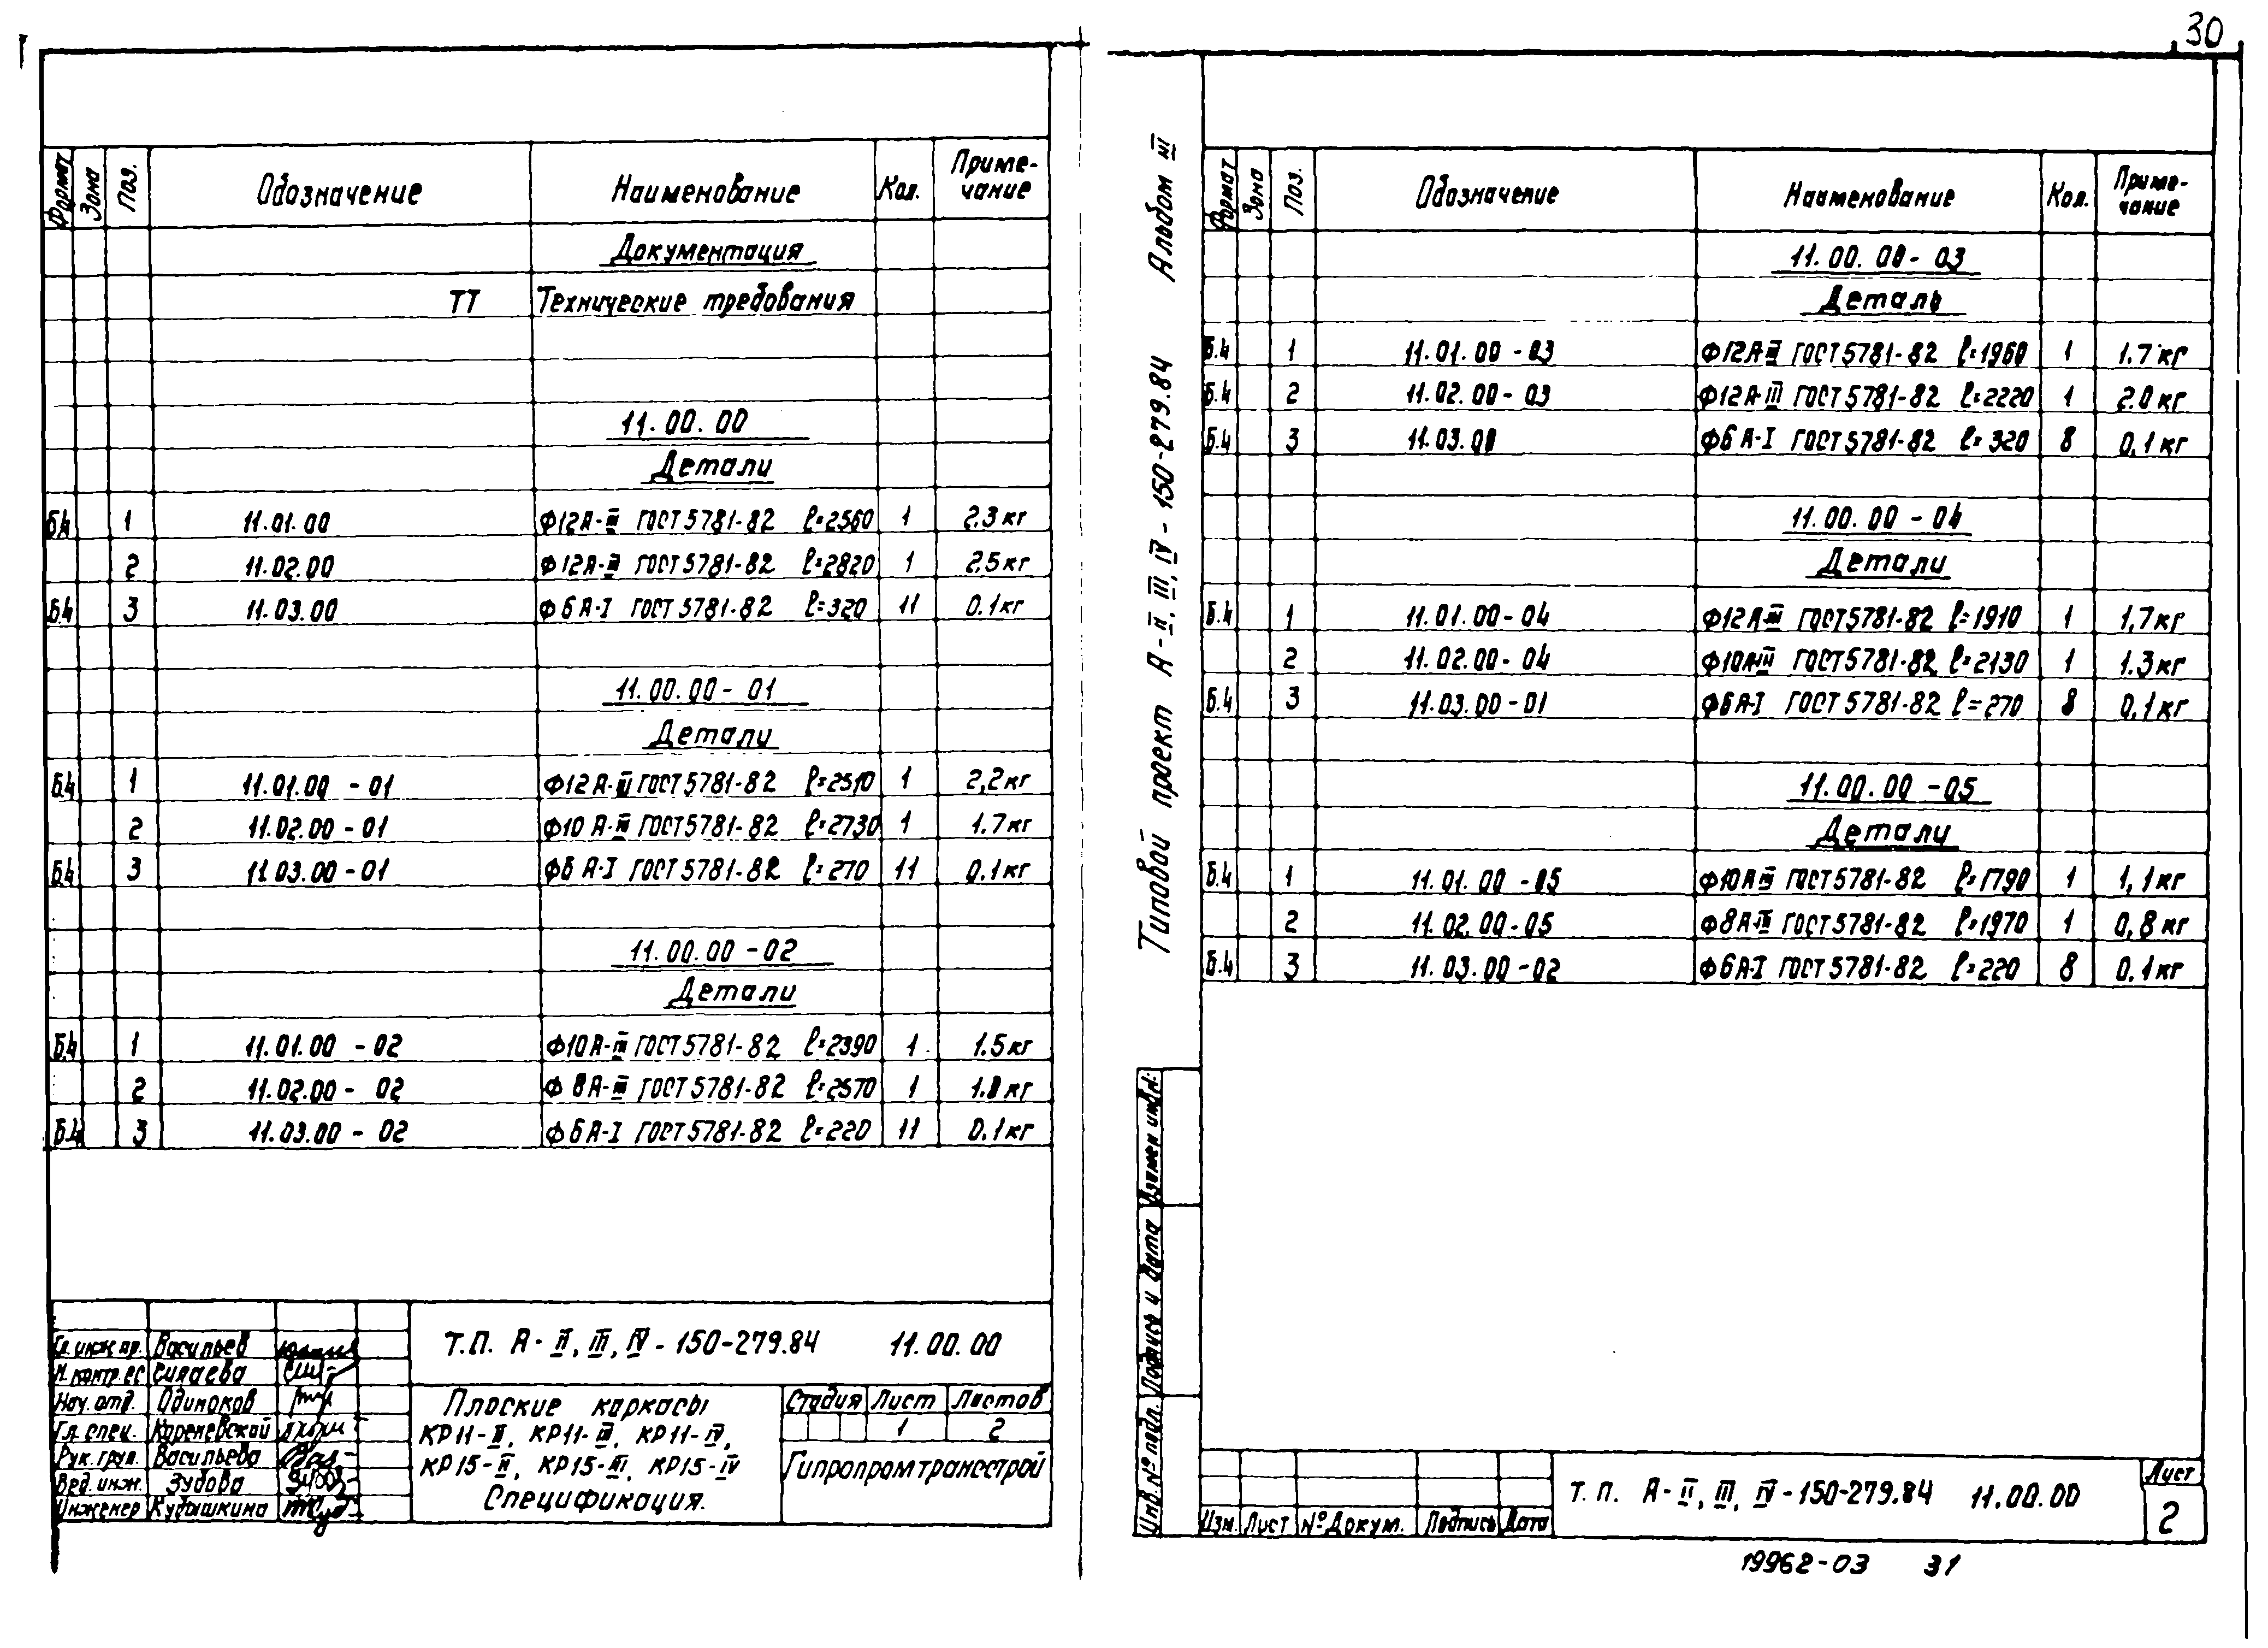 30
Формат Зона Поз. Обозначение Наименование Кол. Приме-
чание
Документация
ТТ Технические требования
11.00.00
Детали
Б.4 1 11.01.00 Ф12А-III ГОСТ 5781-82 ℓ=2560 1 2.3 кг
2 11.02.00 Ф12А-III ГОСТ 5781-82 ℓ=2820 1 2.5 кг
Б.4 3 11.03.00 Ф6 А-I ГОСТ 5781-82 ℓ=320 11 0.1 кг
11.00.00-01
Детали
Б.4 1 11.01.00-01 Ф12 А-III ГОСТ 5781-82 ℓ=2510 1 2,2 кг
2 11.02.00-01 Ф10 А-III ГОСТ 5781-82 ℓ=2730 1 1.7 кг
Б.4 3 11.03.00-01 Ф6 А-I ГОСТ 5781-82 ℓ=270 11 0.1 кг
11.00.00-02
Детали
Б.4 1 11.01.00-02 Ф10 А-III ГОСТ 5781-82 ℓ=2390 1 1.5 кг
2 11.02.00-02 Ф 8 А-III ГОСТ 5781-82 ℓ=2570 1 1.0 кг
Б.4 3 11.03.00-02 Ф 6 А-I ГОСТ 5781-82 ℓ=220 11 0.1 кг
Гл. инж. пр. Васильев
Н. контр. ес Силаева
Нач. отд. Одиноков
Гл. спец. Кореневской
Рук. груп. Васильева
Вед. инж. Зубова
Инженер Кубышкина
Т.П. А-II, III, IV-150-279.84 11.00.00
Плоские каркасы
КР11-II, КР11-III, КР11-IV,
КР15-II, КР15-III, КР15-IV
Спецификация.
Стадия Лист Листов
1 2
Гипропромтрансстрой
Типовой проект А-II, III, IV-150-279.84 Альбом III
Формат Зона Поз. Обозначение Наименование Кол. Приме-
чание
11.00.00-03
Деталь
Б.4 1 11.01.00-03 Ф12А-III ГОСТ 5781-82 ℓ=1960 1 1.7 кг
Б.4 2 11.02.00-03 Ф12А-III ГОСТ 5781-82 ℓ=2220 1 2.0 кг
Б.4 3 11.03.00 Ф6 А-I ГОСТ 5781-82 ℓ=320 8 0.1 кг
11.00.00-04
Детали
Б.4 1 11.01.00-04 Ф12А-III ГОСТ 5781-82 ℓ=1910 1 1,7 кг
2 11.02.00-04 Ф10А-III ГОСТ 5781-82 ℓ=2130 1 1.3 кг
Б.4 3 11.03.00-01 Ф6 А-I ГОСТ 5781-82 ℓ=270 8 0,1 кг
11.00.00-05
Детали
Б.4 1 11.01.00-05 Ф10А-III ГОСТ 5781-82 ℓ=1790 1 1,1 кг
2 11.02.00-05 Ф8А-III ГОСТ 5781-82 ℓ=1970 1 0,8 кг
Б.4 3 11.03.00-02 Ф6А-I ГОСТ 5781-82 ℓ=220 8 0.1 кг
Инв. № подл. Подпись и дата Взамен инв. №
Изм. Лист № Докум. Подпись Дата
Т.П. А-II, III, IV-150-279.84 11.00.00
Лист
2
19962-03 31